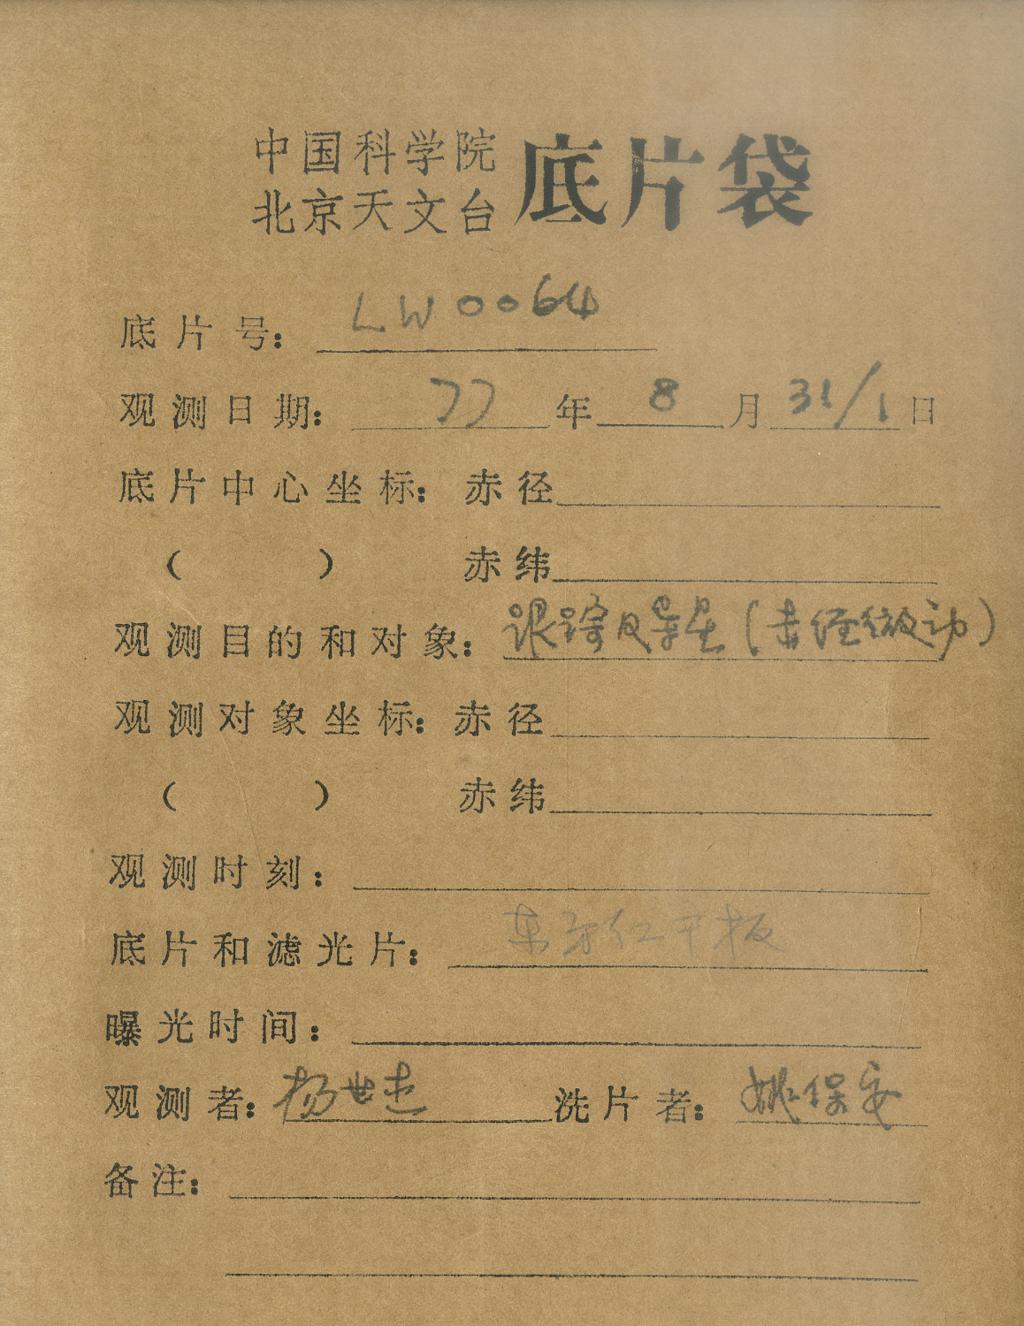 中国科学院
北京天文台 底片袋
底片号: LW0064
观测日期: 77年 8月 31/1日
底片中心坐标: 赤径
( ) 赤纬
观测目的和对象: 跟踪及导星(赤径微动)
观测对象坐标: 赤径
( ) 赤纬
观测时刻:
底片和滤光片: 干板
曝光时间:
观测者: 杨世杰 洗片者: 姚保安
备注: